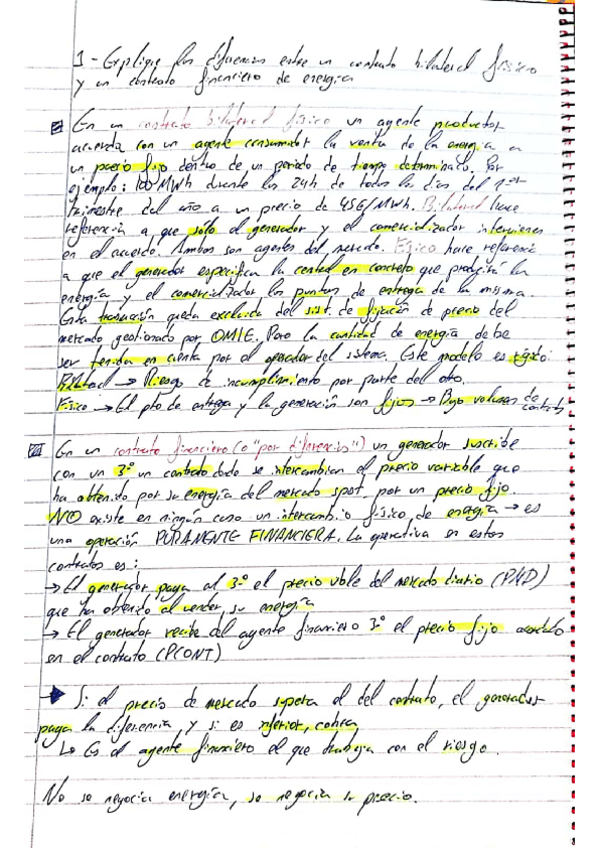 1 - Explique las diferencias entre un contrato bilateral físico
y un contrato financiero de energía
En un contrato bilateral físico un agente productor
acuerda con un agente consumidor la venta de la energía a
un precio fijo dentro de un periodo de tiempo determinado. Por
ejemplo: 100 MWh durante las 24h de todos los días del 1er
trimestre del año a un precio de 45€/MWh. Bilateral hace
referencia a que sólo el generador y el comercializador intervienen
en el acuerdo. Ambos son agentes del mercado. Físico hace referencia
a que el generador especifica la central en concreto que producirá la
energía y el comercializador los puntos de entrega de la misma.
Esta transacción queda excluida del sist. de fijación de precio del
mercado gestionado por OMIE. Pero la cantidad de energía debe
ser tenida en cuenta por el operador del sistema. Este modelo es rígido:
Bilateral → Riesgo de incumplimiento por parte del otro.
Físico → El pto de entrega y la generación son fijos → Bajo volumen de contratos
En un contrato financiero (o "por diferencias") un generador suscribe
con un 3º un contrato donde se intercambian el precio variable que
ha obtenido por su energía del mercado spot, por un precio fijo.
NO existe en ningún caso un intercambio físico de energía → es
una operación PURAMENTE FINANCIERA. La operativa en estos
contratos es:
→ El generador paga al 3º el precio vble del mercado diario (PMD)
que ha obtenido al vender su energía
→ El generador recibe del agente financiero 3º el precio fijo acordado
en el contrato (PCONT)
→ Si el precio de mercado supera al del contrato, el generador
paga la diferencia y si es inferior, cobra
↳ Es el agente financiero el que trabaja con el riesgo.
No se negocia energía, se negocia su precio.